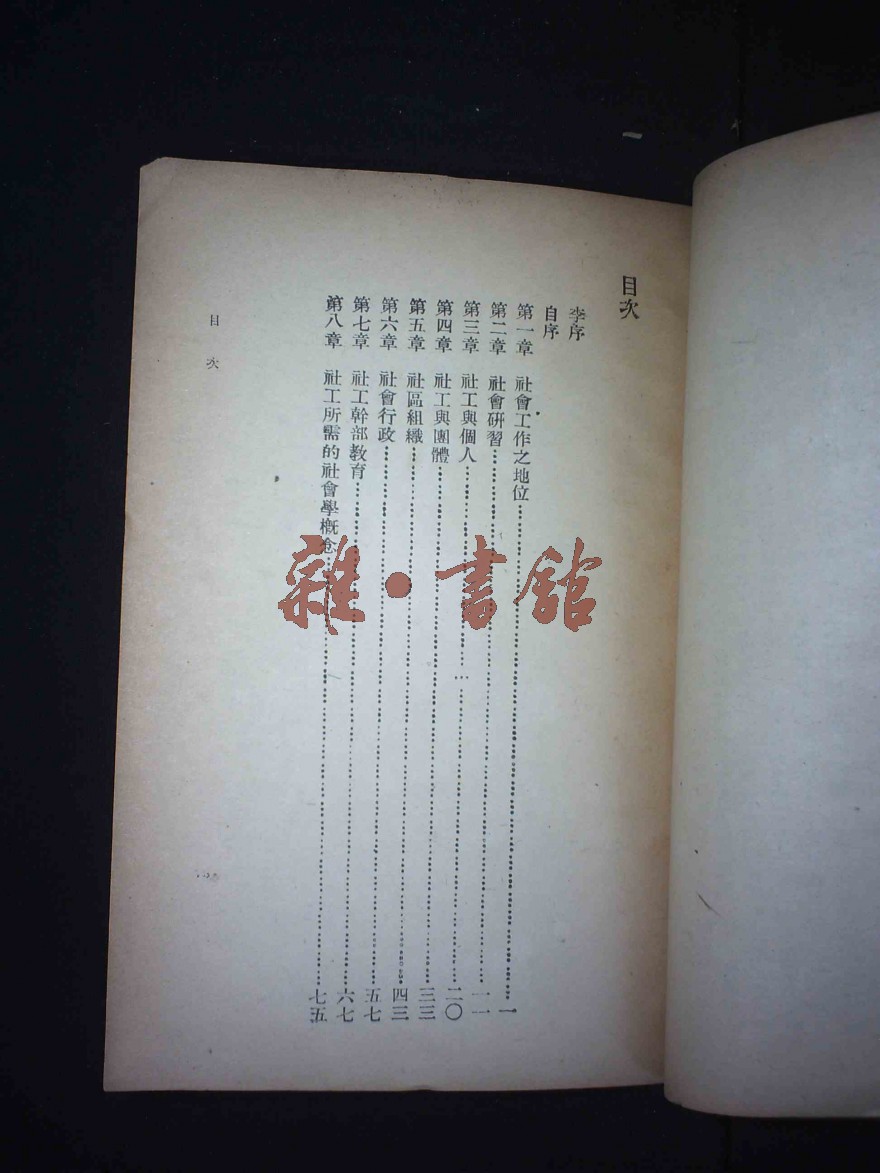 目次
李序
自序
第一章 社會工作之地位……一
第二章 社會研習……一一
第三章 社工與個人……二〇
第四章 社工與團體……三三
第五章 社區組織……四三
第六章 社會行政……五七
第七章 社工幹部教育……六七
第八章 社工所需的社會學概念……七五
目次
雜·書館